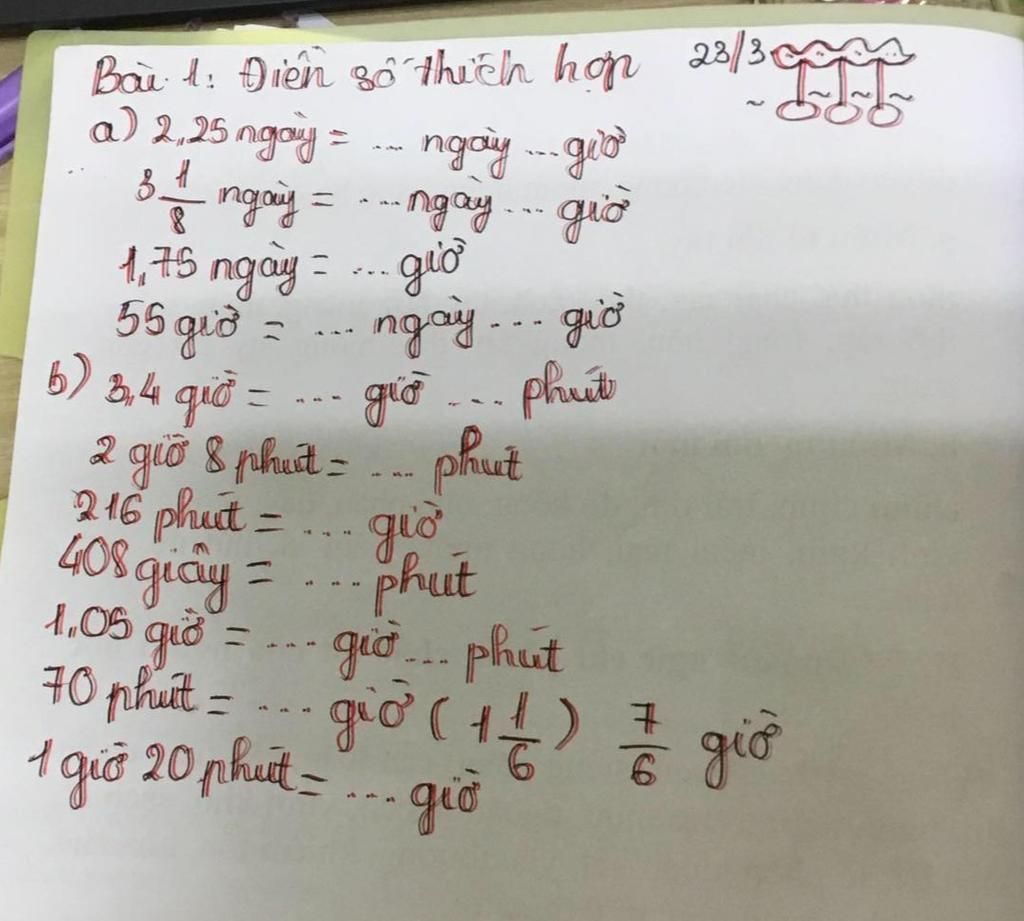 Bài 1: Điền số thích hợp
23/3
a) 2,25 ngày = ... ngày ... giờ
3 1/8 ngày = ... ngày ... giờ
1,75 ngày = ... giờ
55 giờ = ... ngày ... giờ
b) 3,4 giờ = ... giờ ... phút
2 giờ 8 phút = ... phút
216 phút = ... giờ
408 giây = ... phút
1,05 giờ = ... giờ ... phút
70 phút = ... giờ (1 1/6) 7/6 giờ
1 giờ 20 phút = ... giờ